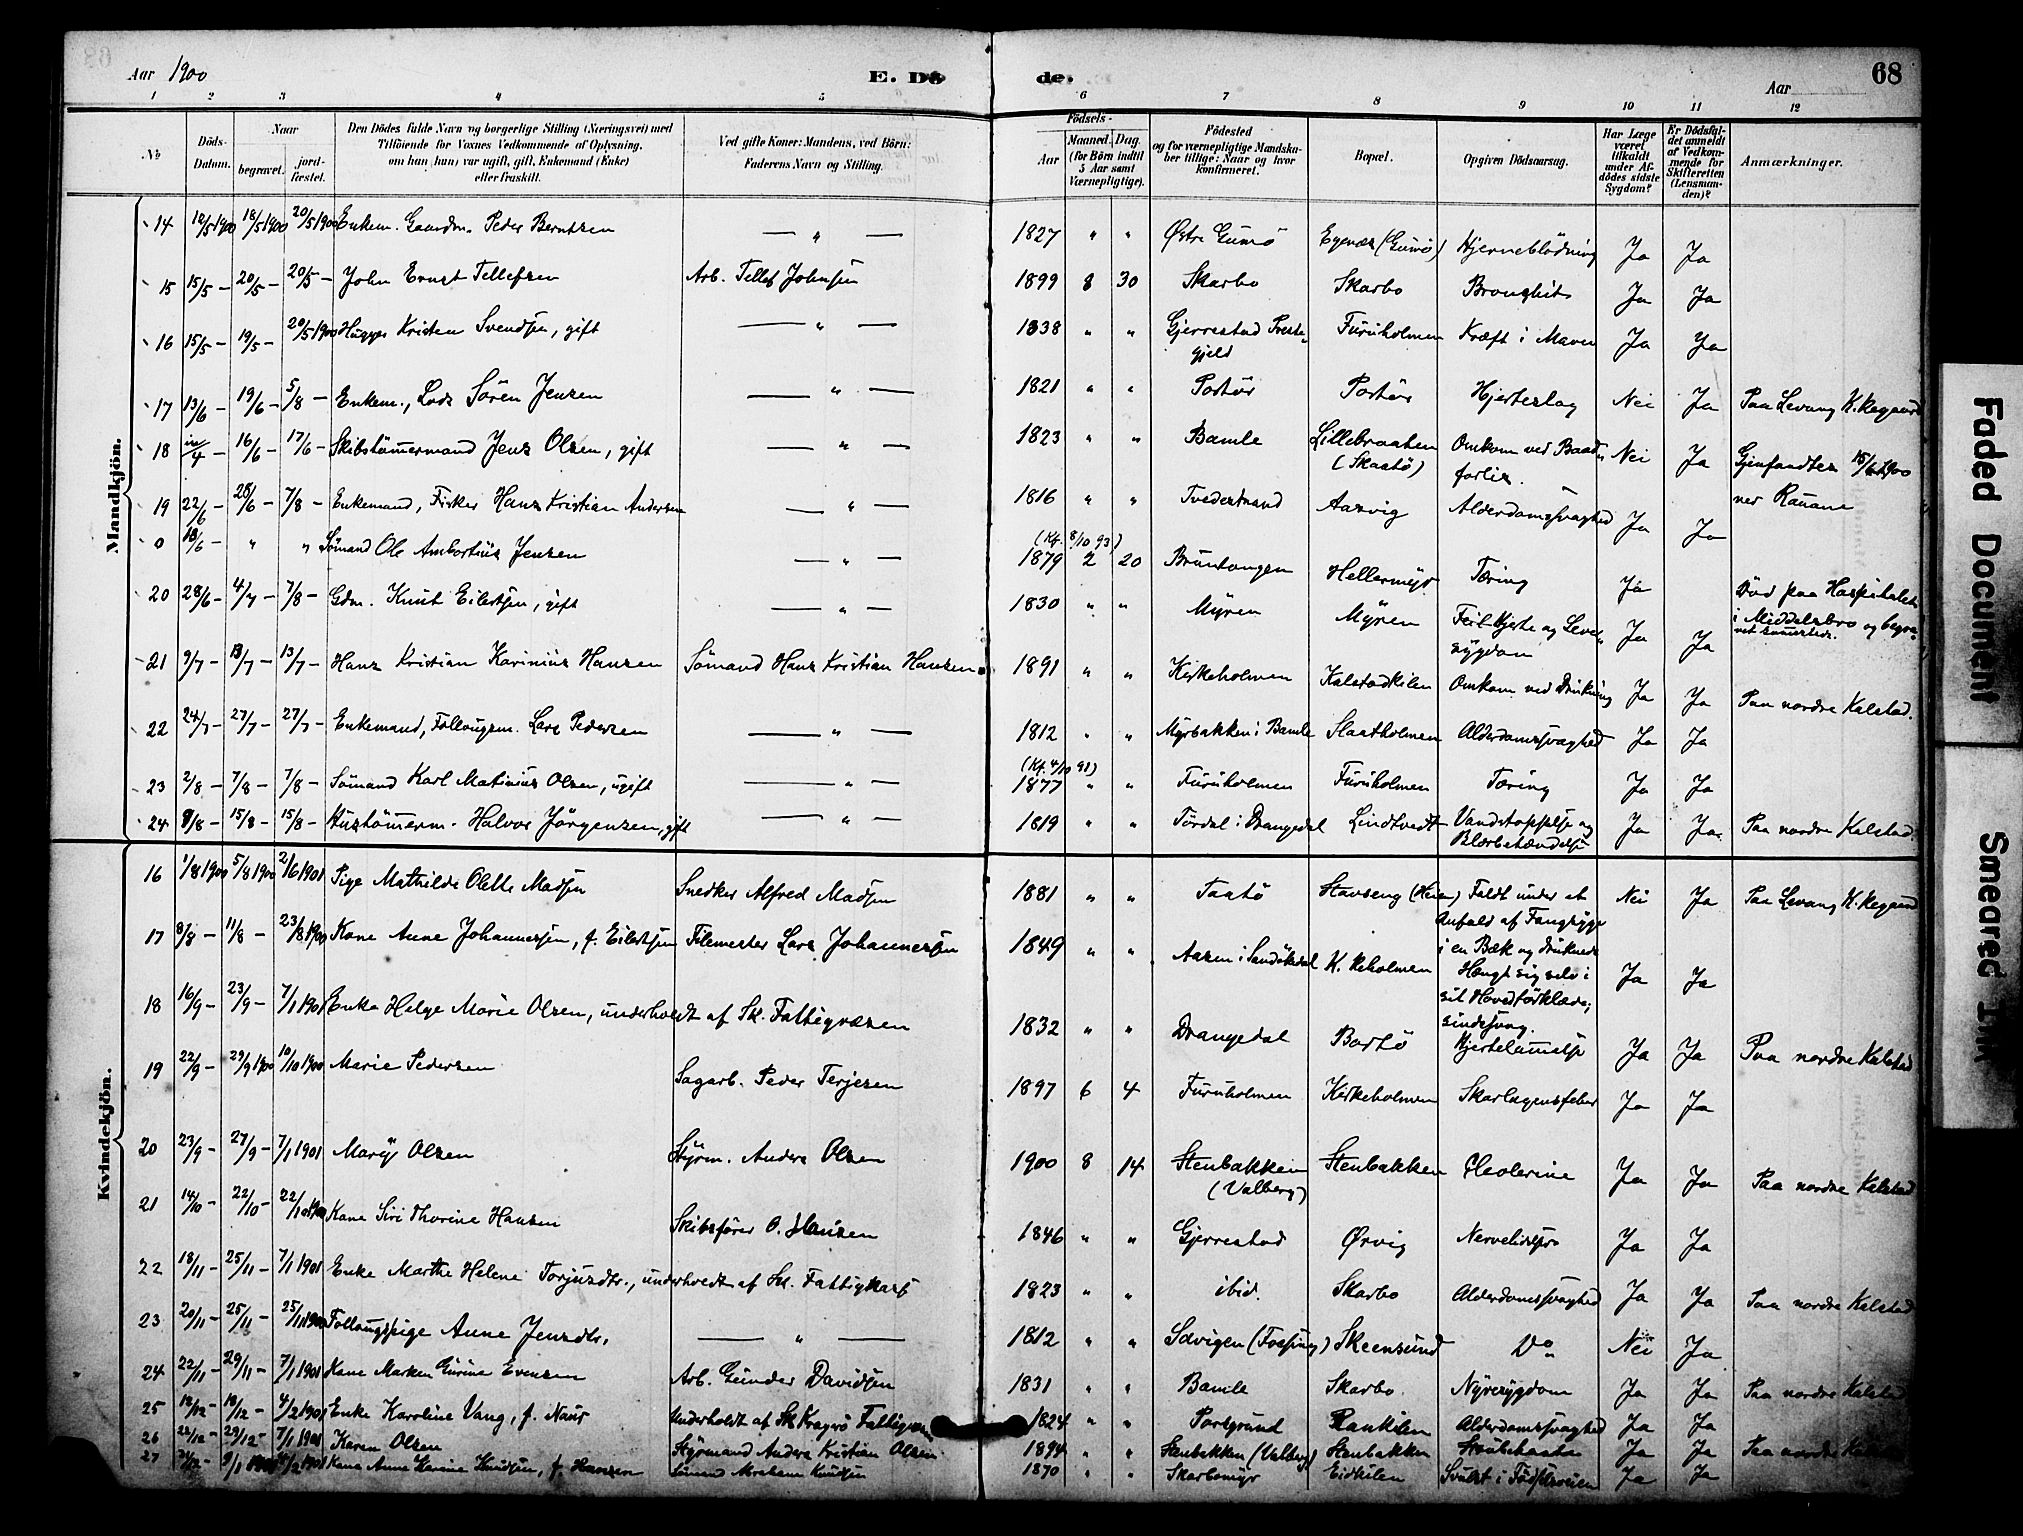 Aar 1900 E. Dö de. Aar 68
1 2 3 4 5 6 7 8 9 10 11 12
No
Döds-Datum.
Naar
begravet.
jord-fæstet.
Den Dödes fulde Navn og borgerlige Stilling (Næringsvei) med
Tilföiende for Voxnes Vedkommende af Oplysning,
om han (hun) var ugift, gift, Enkemand (Enke)
eller fraskilt.
Ved gifte Koner: Mandens, ved Börn:
Faderens Navn og Stilling.
Födsels-
Aar
Maaned. Dag.
(for Börn indtil
5 Aar samt
Værnepligtige).
Födested
og for værnepligtige Mandska-
ber tillige: Naar og hvor
konfirmeret.
Bopæl.
Opgiven Dödsaarsag.
Har Læge
været
tilkaldt
under Af-
dödes sidste
Sygdom?
Er Dödsfal-
det anmeldt
af Vedkom-
mende for
Skifteretten
(Lensman-
den)?
Anmærkninger.
Mandkjön.
14 12/5 1900 18/5 1900 20/5 1900 Enkem. Gaardm. Peder Berntsen — " — 1827 " " Østre Gumö Egenæs (Gumö) Hjerneblödning Ja Ja
15 15/5 — 20/5 — 20/5 — John Ernst Tellefsen Arb. Tellef Johnsen 1899 8 30 Skarbo Skarbo Bronchit Ja Ja
16 15/5 — 19/5 — 20/5 1900 Hugger Kristen Svendsen, gift — " — 1838 " " Gjerrestad Preste-
gjeld Furuholmen Kræft i Maven Ja Ja
17 13/6 — 19/6 — 5/8 — Enkem., Lods Sören Jensen — " — 1821 " " Portör Portör Hjerteslag Nei Ja Paa Levang K.kegaard
18 — 16/6 — 17/6 — Skibstömmermand Jens Olsen, gift — " — 1823 " " Bamle Lillebraaten
(Skaatö) Omkom ved Baad-
forlis. Nei Ja Gjenfandtes 15/6 1900
ver Rauane
19 22/6 — 28/6 — 7/8 — Enkemand, Fisker Hans Kristian Andersen — " — 1816 " " Tvedestrand Aasvig Alderdomssvaghed Ja Ja
0 18/6 " " Sömand Ole Ambortius Jensen — " — (Kf. 8/10 93)
1879 2 20 Bruntangen Hellermyr Tæring Ja Död paa Hospitalet
i Middelsbro og begra-
vet sammesteds.
20 28/6 — 4/7 — 7/8 — Gdm. Knut Eilertsen, gift — " — 1830 " " Myren Myren Feil Hjerte og Lever-
sygdom Ja Ja
21 9/7 — 13/7 — 13/7 — Hans Kristian Karinius Hansen Sömand Hans Kristian Hansen 1891 " " Kirkeholmen Kalstadkilen Omkom ved Drukning Ja Ja Paa nordre Kalstad.
22 24/7 — 27/7 — 27/7 — Enkemand, Follaugsm. Lars Pedersen — " — 1812 " " Myrbakken i Bamle Slaatholmen Alderdomssvaghed Ja Ja
23 2/8 — 7/8 — 7/8 — Sömand Karl Matinius Olsen, ugift — " — (Kf. 4/10 91)
1877 " " Furuholmen Furuholmen Tæring Ja Ja
24 9/8 — 15/8 — 15/8 — Hustömerm. Halvor Jörgensen, gift — " — 1819 " " Tördal i Drangedal Lindtvedt Vandstoppelse og
Blærebetændelse Ja Ja Paa nordre Kalstad
Kvindekjön.
16 1/8 1900 5/8 1900 2/6 1901 Pige Mathilde Olette Madsen Snedker Alfred Madsen 1881 " " Taatö Stavseng (Heien) Faldt under et
Anfald af Fangsyge
i en Bæk og druknede Nei Ja Paa Levang K.kegaard
17 8/8 — 11/8 — 23/8 1900 Kone Anne Johannesen, f. Eilertsen Filemester Lars Johannesen 1849 " " Aasen i Sandökedal K.keholmen Hængt sig selv i
sit Hovedtörklæde;
sindssvag. Ja Ja
18 16/9 — 23/9 — 7/1 1901 Enke Helge Marie Olsen, underholdt af Sk. Fattigvæsen 1832 " " Drangedal Bortö Hjertelamelse Ja Ja Paa nordre Kalstad
19 22/9 — 29/9 1900 10/10 1900 Marie Pedersen Sagarb. Peder Terjesen 1897 6 4 Furuholmen Kirkeholmen Skarlagensfeber Ja Ja
20 23/9 — 27/9 — 7/1 1901 Mary Olsen Styrm. Anders Olsen 1900 8 14 Stenbakken
(Valberg) Stenbakken Cholerine Ja Ja Paa nordre Kalstad
21 14/10 — 22/10 — 22/10 1900 Kone Siri Thorine Hansen Skibsförer O. Hansen 1846 " " Gjerrestad Ørvig Nervelidelse Ja Ja
22 18/11 — 25/11 — 7/1 1901 Enke Marthe Helene Torjusdtr., underholdt af Sk. Fattigkasse 1823 " " ibid. Skarbo Alderdomssvaghed Ja Ja Paa nordre Kalstad
23 20/11 — 25/11 — 25/11 1900 Follaugspige Anne Jensdtr. — " — 1812 " " Solvigen (Fossing) Skeensund Do Nei Ja
24 22/11 — 29/11 — 7/1 1901 Kone Maren Gurine Evensen Arb. Gunder Davidsen 1831 " " Bamle Skarbo Nyresygdom Ja Ja Paa nordre Kalstad
25 12/12 — 18/12 — 4/2 1901 Enke Karoline Vang, f. Naur Underholdt af Sk. Kragerö Fattigv. 1824 " " Porsgrund Rankilen Alderdomssvaghed Ja Ja
26 22/12 — 29/12 — 7/1 1901 Karen Olsen Styrmand Anders Kristian Olsen 1894 " " Stenbakken (Valberg) Stenbakken Strubehoste Ja Ja Paa nordre Kalstad
27 9/1 1901 1901 Kone Anne Karine Knudsen, f. Hansen Sömand Abraham Knudsen 1870 " " Skarbomyr Eidkilen Svulst i Födselsveien Ja Ja
Faded Document
Smeared Ink